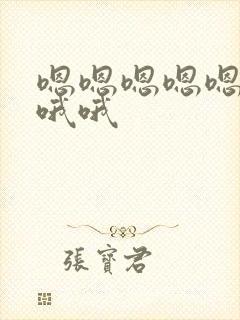 嗯嗯嗯嗯嗯
哦哦
張寶君